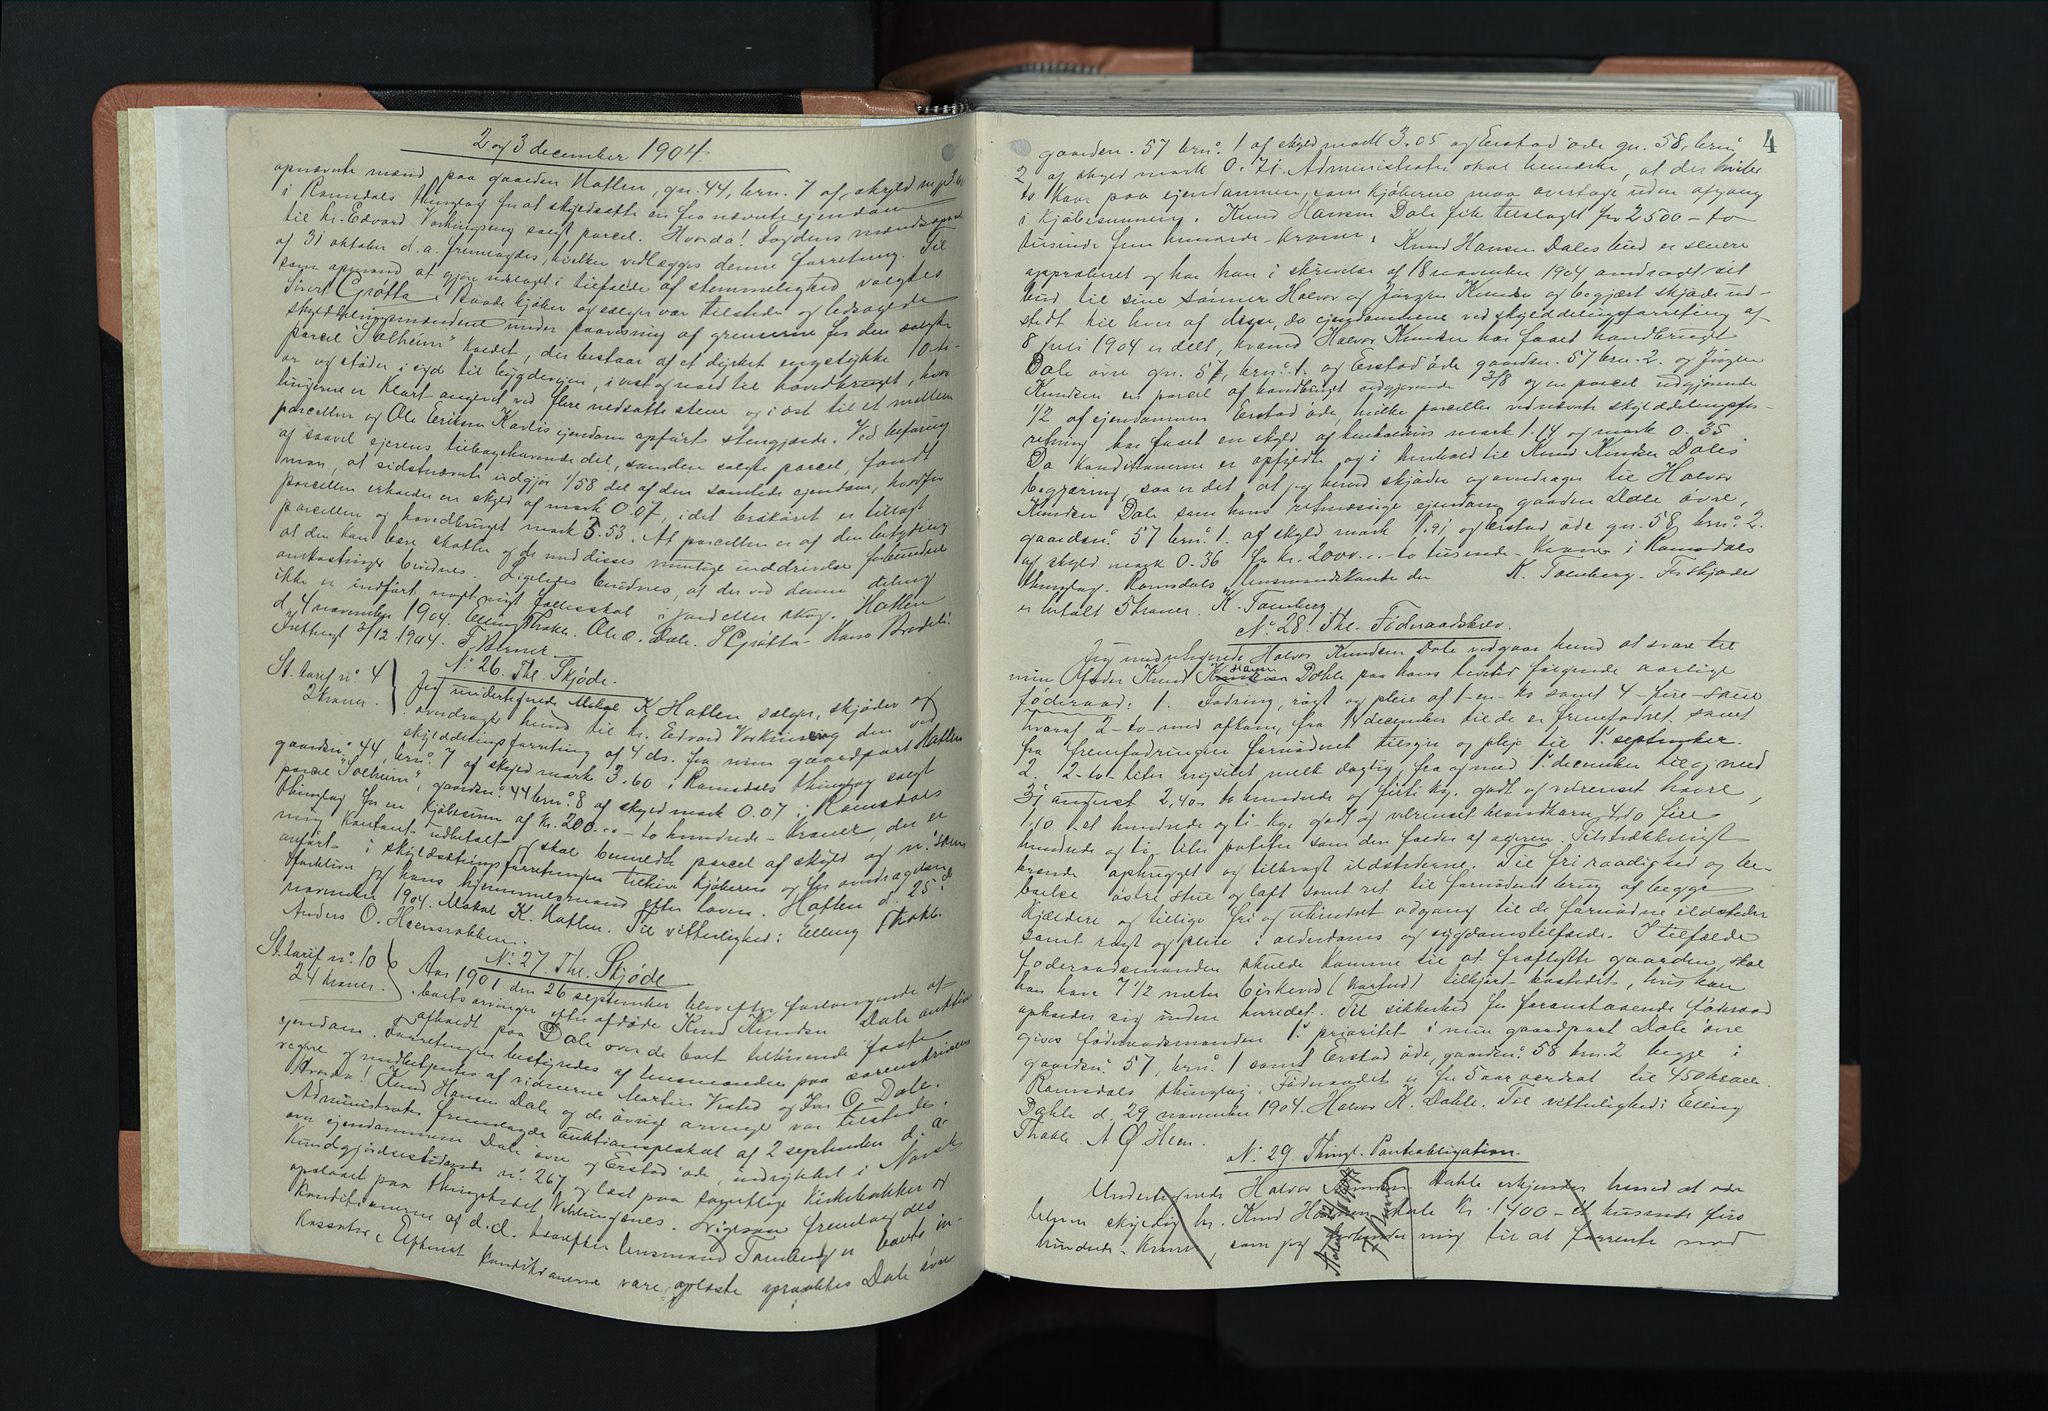 2 og 3 december 1904.
opnævnte mænd paa gaarden Hatlen, gn. 44, brn. 7 af skyld m. 3.60
i Romsdals thinglag for at skyldsætte en fra nævnte ejendom
til hr. Edvard Vorkinseng solgt parcel. Hvorda! Fogdens mandsopnævn
af 31 oktober d. a. fremlagdes, hvilken vedlægges denne forretning. Til
som opmand at gjøre udslaget i tilfælde af stemmelighed valgtes
Sivert Grøtta. Baade kjøber og sælger var tilstede og ledsagede
skyldelingsmændene under paavisning af grænserne for den solgte
parcel "Solheim" kaldet, der bestaar af et dyrket engstykke 10 ti-
ar og støder i syd til bygdevejen, i vest og nord til hovedbruget, hvor
linjerne er klart angivet ved flere nedsatte stene og i øst til et mellem
parcellen og Ole Eriksen Kavlis ejendom opført stengjærde. Ved befaring
af saavel ejerens tilbageholdende del, som den solgte parcel, fandt
man, at sidstnævnte udgjør 1/58 del af den samlede ejendom, hvorfor
parcellen erholder en skyld af mark 0.07, idet brøken er tillagt
parcellen og hovedbruget mark 3.53. At parcellen er af den betydning
at den kan bære skatter og de med disses mulige inddrivelse forbundne
omkostninger bevidnes. Ligeledes bevidnes, at der ved denne deling
ikke er indført noget nyt fællesskab i jord eller skog. Hatlen
d. 4 november 1904. Elling Thokle. Ole O. Dale. S Grøtta. Hans Bredeli
Inthngt 3/12 1904. F. Werner
St. tarif no. 4
2 kroner.
No. 26. Thl. Skjøde.
Jeg undertegnede Mekal K Hatlen sælger, skjøder og
overdrager herved til hr. Edvard Vorkinseng den ved
skylddelingsforretning af 4 ds. fra min gaardpart Hatlen
gaardsno. 44, brno. 7 af skyld mark 3.60 i Romsdals thinglag solgt
parcel "Solheim", gaardsno. 44 brno. 8 af skyld mark 0.07 i Romsdals
thinglag for en kjøbesum af kr. 200.00 - to hundrede - kroner, der er
mig kontant udbetalt og skal bemeldte parcel af skyld og no. som
anført i skyldsætningsforretningen tilhøre kjøberen og for overdragelsen
forbliver jeg hans hjemmelsmand efter loven. Hatlen d. 25de
november 1904. Mekal K. Hatlen. Til vitterlighed: Elling Thokle.
Anders O. Heensrokken.
St. tarif no. 10
24 kroner.
No. 27. Thl. Skjøde
Aar 1901 den 26 september blev efter forlangende af
boets arvinger efter afdøde Knud Knudsen Dale auktion
afholdt paa Dale over de boet tilhørende faste
ejendom. Forretningen bestyredes af lensmanden paa sorenskriverens
vegne og medbetjentes af vidnerne Martin Vested og Iver O. Dale.
Hvorda! Knud Hansen Dale og de øvrige arvinge var tilstede.
Administrator fremlagde auktionsplakat af 2 september d. a
over ejendommene Dale øvre og Erstad øde, indrykket i Norsk
Kundgjørelsestidende no. 267 og læst paa samtlige kirkebakker og
opslaaet paa thingstedet Veblungsnes. Ligesom fremlagdes
Konditionerne af d. d. hvorefter lensmand Tomberg er boets in-
kassator, Efterat Konditionerne vare oplæste opraabtes Dale øvre
4
gaardsn. 57 brno. 1 af skyld mark 3.05 og Erstad øde gn. 58, brno.
2 af skyld mark 0.71. Administrator skal bemærke, at der hviler
to kaar paa ejendommen, som kjøberne maa overtage uden afgang
i kjøbesummen. Knud Hansen Dale fik tilslaget for 2500 - to
tusinde fem hundrede - kroner. Knud Hansen Dales bud er senere
approberet og har han i skrivelse af 18 november 1904 overdraget sit
bud til sine sønner Halvor og Jørgen Knudsen og begjært skjøde ud-
stedt til hver af disse, da ejendommene ved skylddelingsforretning af
8 juli 1904 er delt, hvorved Halvor Knudsen har faaet hovedbruget
Dale øvre gn. 57, brno. 1. og Erstad øde gaardsn. 57 brn. 2. og Jørgen
Knudsen en parcel af hovedbruget udgjørende 3/8 og en parcel udgjørende
1/2 af ejendommen Erstad øde, hvilke parceller ved nævnte skylddelingsfor-
retning har faaet en skyld af henholdsvis mark 1.14 og mark 0.35
Da Konditionerne er opfyldte og i henhold til Knud Knudsen Dales
begjæring, saa er det at jeg herved skjøder og overdrager til Halvor
Knudsen Dale som hans retmæssige ejendom gaarden Dale øvre,
gaardsno. 57 brno. 1. af skyld mark 1.91 og Erstad øde gn. 58, brno. 2.
af skyld mark 0.36 for kr. 2000.00 - to tusinde - Kroner i Romsdals
thinglag. Romsdals Lensmandskontor den K. Tomberg. For skjødet
er betalt 5 kroner. K. Tomberg.
No. 28. Thl. Føderaadsbrev.
Jeg undertegnede Halvor Knudsen Dale vedgaar herved at svare til
min fader Knud Hansen Dahle paa hans levetid følgende aarlige
føderaad: 1. Fodring, røgt og pleie af 1 - en - ko samt 4 - fire - sauer
hvoraf 2 - to - med afkom, fra 1 december til de er fremfodret samt
fra fremfodringen fornødent tilsyn og pleje til 1. september.
2. 2 - to - liter nysilet melk daglig fra og med 1. december til og med
31 august. 2,40 - to hundrede og firti kg. godt og velrenset havre,
1,10 - et hundrede og ti - kg. godt og velrenset blandkorn 4,10 fire
hundrede og ti liter poteter som den falder af ageren. Tilstrækkeligt
brænde ophugget og tilbragt ildstederne. Til fri raadighed og be-
boelse østre stue og loft samt ret til fornødent brug af begge
kjældere og tillige fri og uhindret adgang til de fornødne ildsteder
samt røgt og pleie i alderdoms og sygdomstilfælde. I tilfælde
føderaadsmanden skulde komme til at fraflytte gaarden, skal
han have 7 1/2 meter birkeved (korted) tilkjørt bostedet, hvis han
opholder sig inden herredet. Til sikkerhed for foranstaaende føderaad
gives føderaadsmanden 1. prioritet i min gaardpart Dale øvre
gaardsno. 57, brno. 1 samt Erstad øde, gaardsno. 58 brn. 2 begge i
Romsdals thinglag. Føderaadet er for 5 aar værdsat til 450 kroner.
Dahle d. 29 november 1904. Halvor K. Dahle. Til vitterlighed: Elling
Thokle. A Ø Heen.
No. 29. Thingl. Pantobligation.
Undertegnede Halvor Knudsen Dahle erkjender herved at være
bleven skyldig hr. Knud Hansen Dale Kr. 1400 - et tusinde fire
hundrede - kroner, som jeg forbinder mig til at forrente med